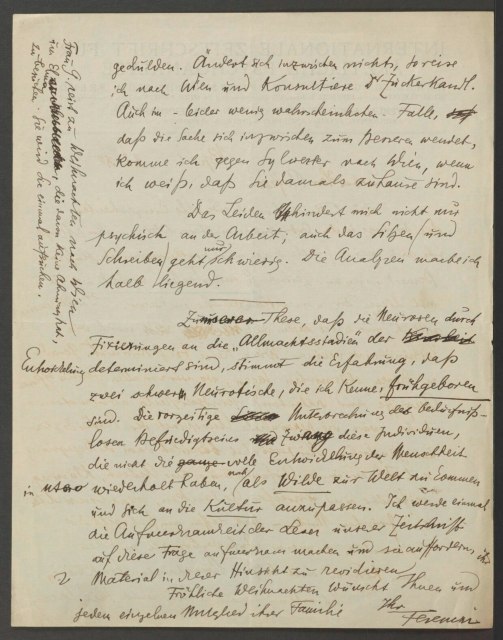 gedulden. Ändert sich inzwischen nichts, so reise
ich nach Wien und Konsultiere Dr Zuckerkandl.
Auch im – leider wenig wahrscheinlichen – Falle,
daß die Sache sich inzwischen zum Besseren wendet,
komme ich gegen Sylvester nach Wien, wenn
ich weiß, daß Sie damals zuhause sind.
Das Leiden hindert mich nicht nur
psychisch an der Arbeit; auch das Sitzen (und
Schreiben) geht nur schwierig. Die Analysen mache ich
halb liegend.
Zu unserer These, daß die Neurosen durch
Fixierungen an die „Allmachtsstadien" der
Entwicklung determiniert sind, stimmt die Erfahrung, daß
zwei schwer Neurotische, die ich kenne, frühgeboren
sind. Die vorzeitige Unterbrechung des bedürfnis-
losen Befriedigtseins zwang diese Individuen,
die nicht die ganze volle Entwicklung der Menschheit
in utero wiederholt haben, als Wilde zur Welt zu kommen
und sich an die Kultur anzupassen. Ich werde einmal
die Aufmerksamkeit der Leser unserer Zeitschrift
auf diese Frage aufmerksam machen und sie auffordern, ihr
Material in dieser Hinsicht zu revidieren
Fröhliche Weihnachten wünscht Ihnen und
jedem einzelnen Mitglied ihrer Familie Ihr
Ferenczi
Frau G. reist zu Weihnachten nach Wien
um Elma, die dann keine
zu besuchen. Sie wird Sie einmal aufsuchen.